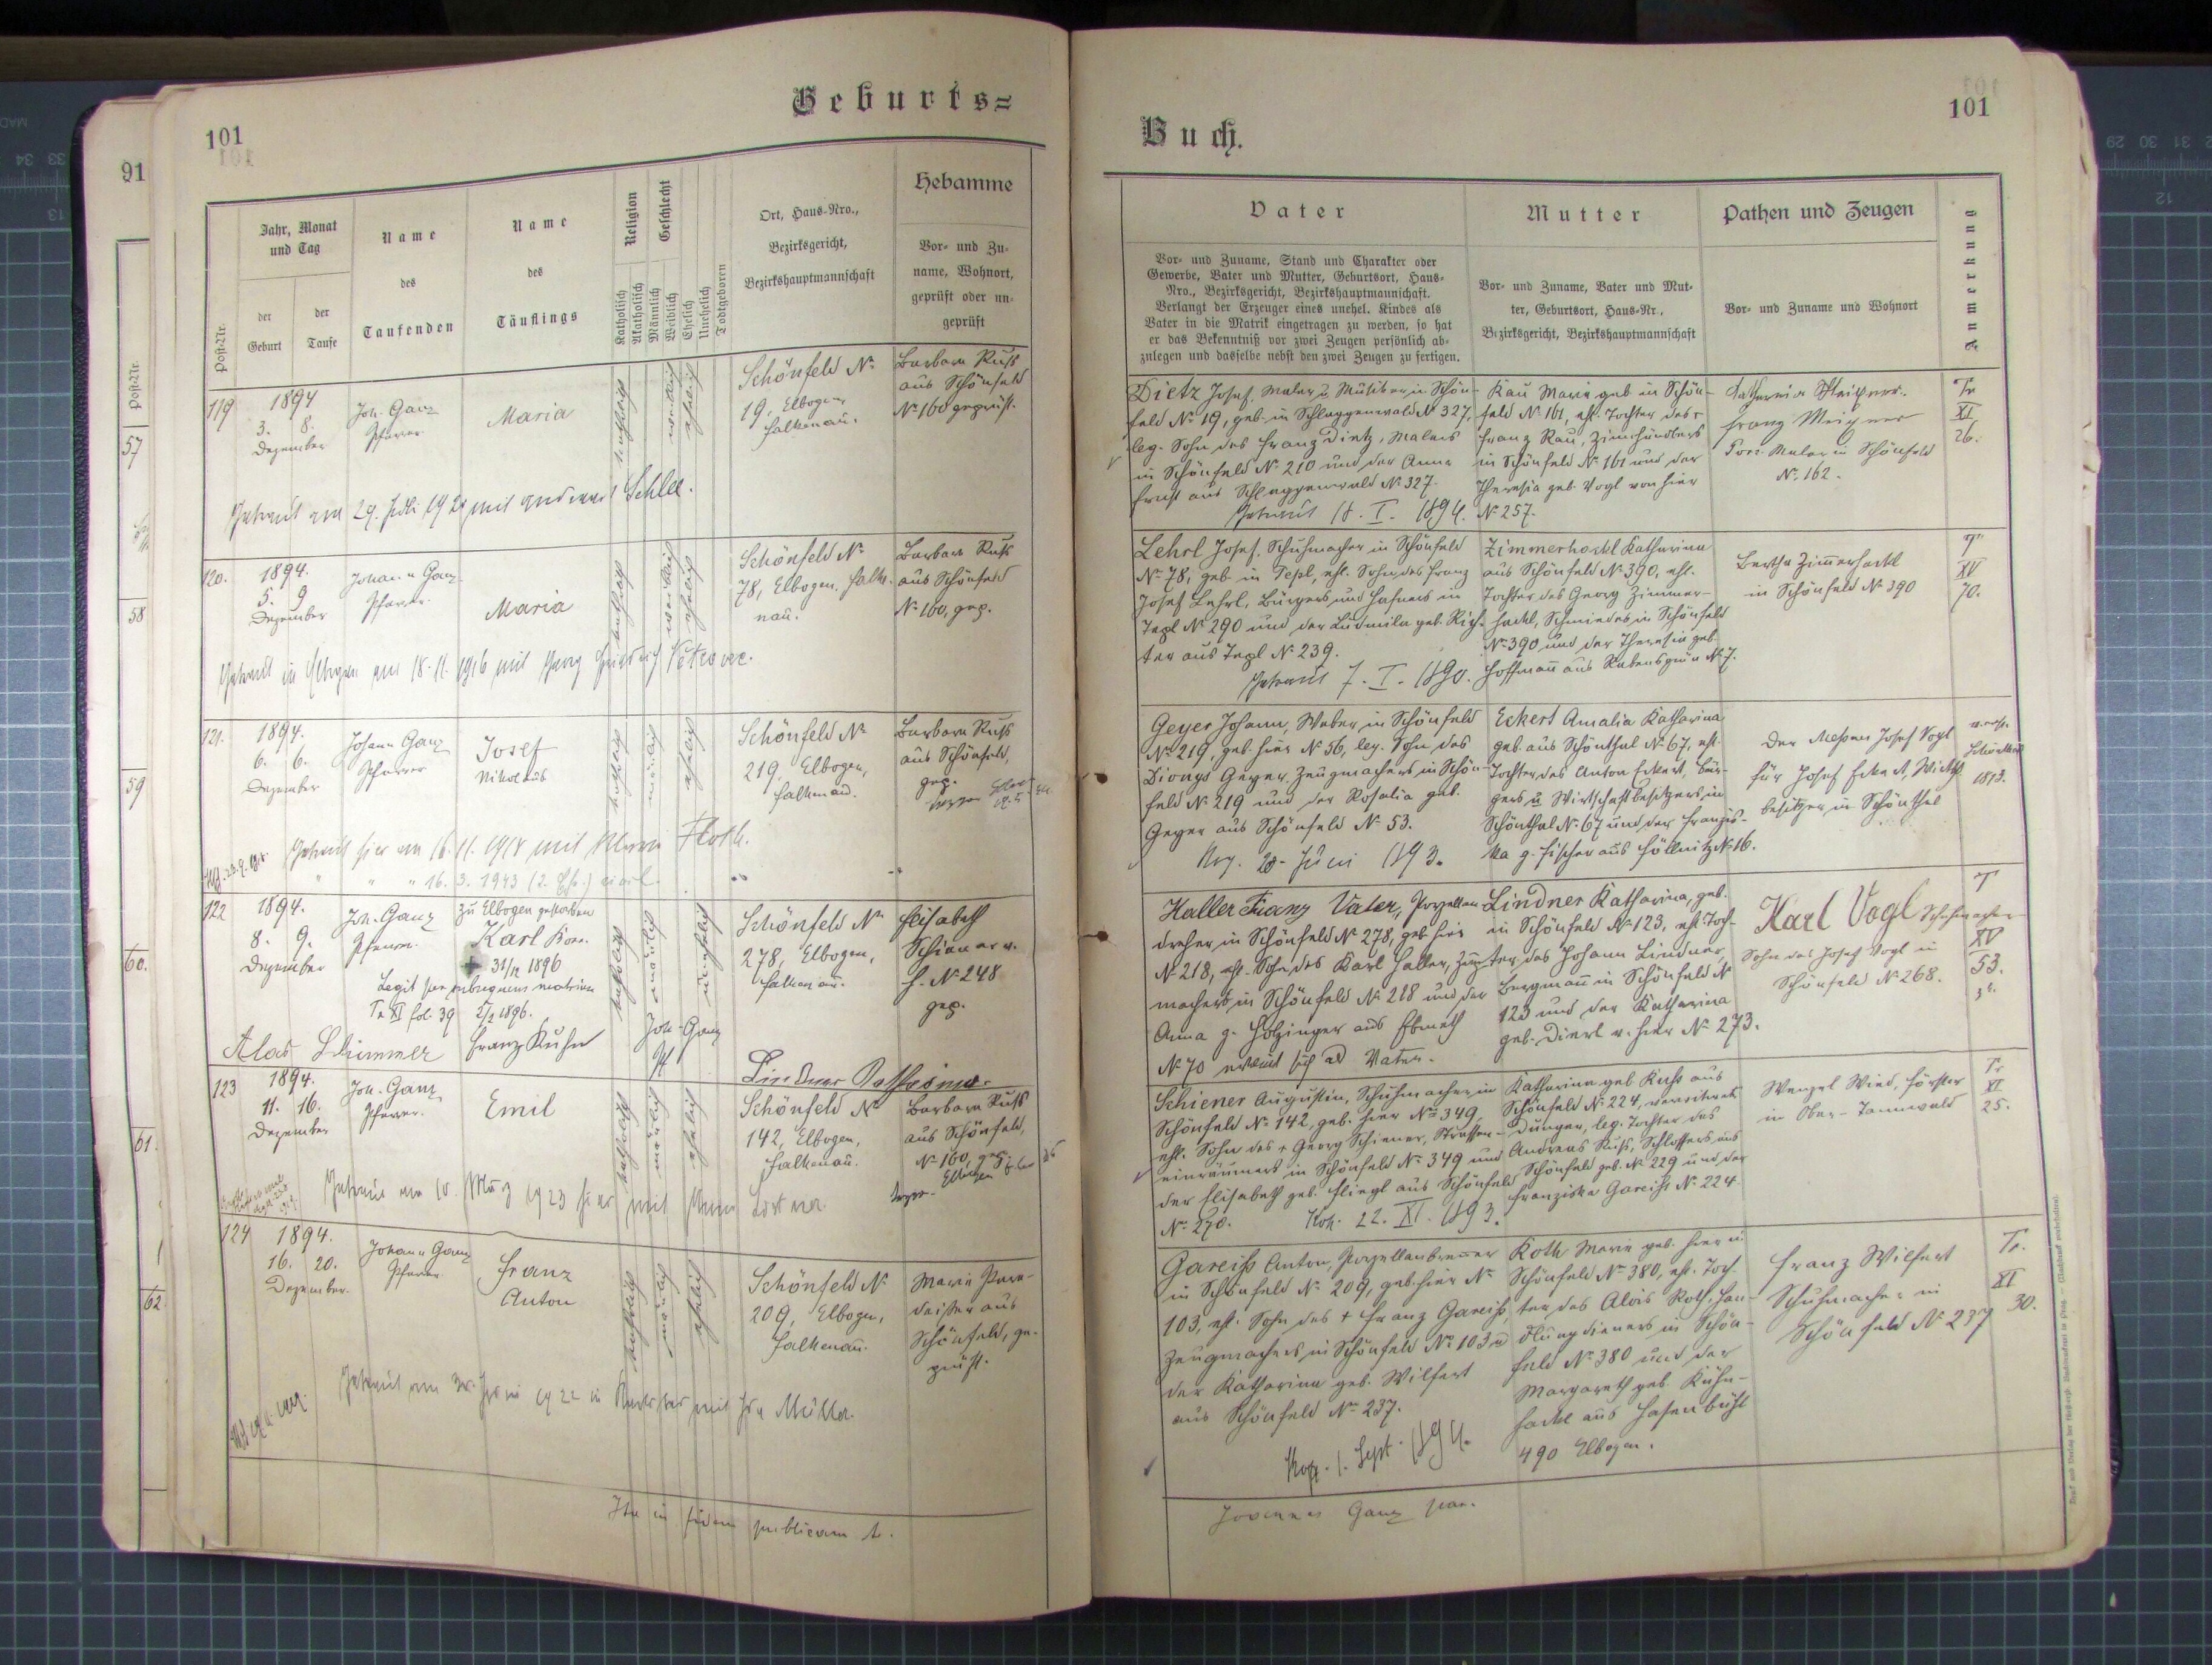 Geburts=
101
91
Jahr, Monat
und Tag
der
Geburt
der
Taufe
Post-Nr.
Name
des
Taufenden
Name
des
Täuflings
Religion
Katholisch
Akatholisch
Geschlecht
Männlich
Weiblich
Ehelich
Unehelich
Todtgeboren
Ort, Haus-Nro.,
Bezirksgericht,
Bezirkshauptmannschaft
Hebamme
Vor- und Zu-
name, Wohnort,
geprüft oder un-
geprüft
Post-Nr.
57
58
59
60.
61.
62
119
1894
3. 8.
Dezember
Joh. Ganz
Pfarrer
Maria
katholisch
weiblich
ehelich
Schönfeld No
19, Elbogen
Falkenau.
Barbara Russ
aus Schönfeld
No 160 geprüft.
Getraut am 29. 1920 mit Schlee.
120.
1894.
5. 9
Dezember
Johann Ganz
Pfarrer
Maria
katholisch
weiblich
ehelich
Schönfeld No
78, Elbogen, Falke-
nau.
Barbara Russ
aus Schönfeld
No 160, gep.
Getraut in am 18.11.1916 mit Georg Friedrich
121.
1894.
6. 6.
Dezember
Johann Ganz
Pfarrer
Josef
Nikolaus
katholisch
männlich
ehelich
Schönfeld No
219, Elbogen,
Falkenau.
Barbara Russ
aus Schönfeld,
gep.
Getraut hier am 16.11.1918 mit Floth.
" " " 16.3.1943 (2. Ehe) civil.
122
1894.
8. 9.
Dezember
Joh. Ganz
Pfarrer.
zu Elbogen gestorben
Karl
31/12 1896
Legit per subsequens matrim
Tr XI fol. 39 5/2 1896.
katholisch
männlich
unehelich
Schönfeld No
278, Elbogen,
Falkenau.
Elisabeth
Schiener v.
h. No 248
gep.
Franz Kuhn
Joh. Ganz
Pf
Lindner Katharina.
123
1894.
11. 16.
Dezember
Joh. Ganz
Pfarrer.
Emil
katholisch
männlich
ehelich
Schönfeld No
142, Elbogen,
Falkenau.
Barbara Russ
aus Schönfeld,
No 160, gep.
Getraut am 10. März 1923 hier mit Anna
124
1894.
16. 20.
Dezember.
Johann Ganz
Pfarrer
Franz
Anton
katholisch
männlich
ehelich
Schönfeld No
209, Elbogen,
Falkenau.
Maria
aus
Schönfeld, ge-
prüft.
Getraut am 1922 in mit Müller.
Ita in fidem publicam
101
Buch.
Vater
Mutter
Pathen und Zeugen
Anmerkung
Vor- und Zuname, Stand und Charakter oder
Gewerbe, Vater und Mutter, Geburtsort, Haus-
Nro., Bezirksgericht, Bezirkshauptmannschaft.
Verlangt der Erzeuger eines unehel. Kindes als
Vater in die Matrik eingetragen zu werden, so hat
er das Bekenntniß vor zwei Zeugen persönlich ab-
zulegen und dasselbe nebst den zwei Zeugen zu fertigen.
Vor- und Zuname, Vater und Mut-
ter, Geburtsort, Haus-Nr.,
Bezirksgericht, Bezirkshauptmannschaft
Vor- und Zuname und Wohnort
Dietz Josef, Maler u. Musiker in Schön-
feld No 19, geb. in Schlaggenwald No 327,
leg. Sohn des Franz Dietz, Malers
in Schönfeld No 210 und der Anna
Ernst aus Schlaggenwald No 327.
Getraut 18. I. 1894.
Rau Maria geb. in Schön-
feld No 161, ehl. Tochter des
Franz Rau, Zinnhändlers
in Schönfeld No 161 und der
Theresia geb. Vogl von hier
No 257.
Katharina
Franz
Porz. Maler in Schönfeld
No 162.
Tr
XI
26.
Lehrl Josef, Schuhmacher in Schönfeld
No 78, geb. in Tepl, ehl. Sohn des Franz
Josef Lehrl, Bürgers und Hafners in
Tepl No 290 und der Ludmila geb. Rich-
ter aus Tepl No 239.
Getraut 7. I. 1890.
Zimmerhackl Katharina
aus Schönfeld No 390, ehl.
Tochter des Georg Zimmer-
hackl, Schmiedes in Schönfeld
No 390 und der Theresia geb.
Hoffmañ aus Rabensgrün No 7.
Bertha Zim̃erhackl
in Schönfeld No 390
T
XV
70.
Geyer Johann, Weber in Schönfeld
No 219, geb. hier No 56, leg. Sohn des
Dionys Geyer, Zeugmachers in Schön-
feld No 219 und der Rosalia geb.
Geyer aus Schönfeld No 53.
Kop. 20. Juni 1893.
Eckert Amalia Katharina
geb. aus Schönthal No 67, ehl.
Tochter des Anton Eckert, Bür-
gers u. Wirtschaftbesitzers in
Schönthal No 67 und der Franzis-
ka g. Fischer aus No 16.
Der Meßner Josef Vogl
für Josef Eckert, Wirtsch.
besitzer in Schönthal
Schönthal
1893.
Haller Franz Vater, Porzellan-
dreher in Schönfeld No 278, geb. hier
No 218, ehl. Sohn des Karl Haller, Zeug-
machers in Schönfeld No 218 und der
Anna g. Holzinger aus Ebmeth
No 70 erklärt sich als Vater.
Lindner Katharina, geb.
in Schönfeld No 123, ehl. Toch-
ter des Johann Lindner,
Bergmañ in Schönfeld No
123 und der Katharina
geb. Dierl v. hier No 273.
Karl Vogl Schuhmacher
Sohn des Josef Vogl in
Schönfeld No 268.
T
XV
53.
Schiener Augustin, Schuhmacher in
Schönfeld No 142, geb. hier No 349,
ehl. Sohn des + Georg Schiener, Strassen-
einräumers in Schönfeld No 349 und
der Elisabeth geb. Fliegl aus Schönfeld
No 270.
Kop. 22. XI. 1893.
Katharina geb. Russ aus
Schönfeld No 224,
leg. Tochter des
Andreas Russ, Schlossers aus
Schönfeld geb. No 229 und der
Franziska Gareiss No 224.
Wenzel Wied, Förster
in Ober-Tannwald
Tr
XI
25.
Gareiss Anton, Porzellanbrenner
in Schönfeld No 209, geb. hier No
103, ehl. Sohn des + Franz Gareiß,
Zeugmachers in Schönfeld No 103 u.
der Katharina geb. Wilfert
aus Schönfeld No 237.
Kop. 1. Sept. 1894.
Koth Maria geb. hier in
Schönfeld No 380, ehl. Toch-
ter des Alois Koth, Han-
dlungdieners in Schön-
feld No 380 und der
Margareth geb. Kühn-
hackl aus Hasenbühl
490 Elbogen.
Franz Wilfert
Schuhmacher in
Schönfeld No 237
Tr.
XI
30.
Joannes Ganz par.